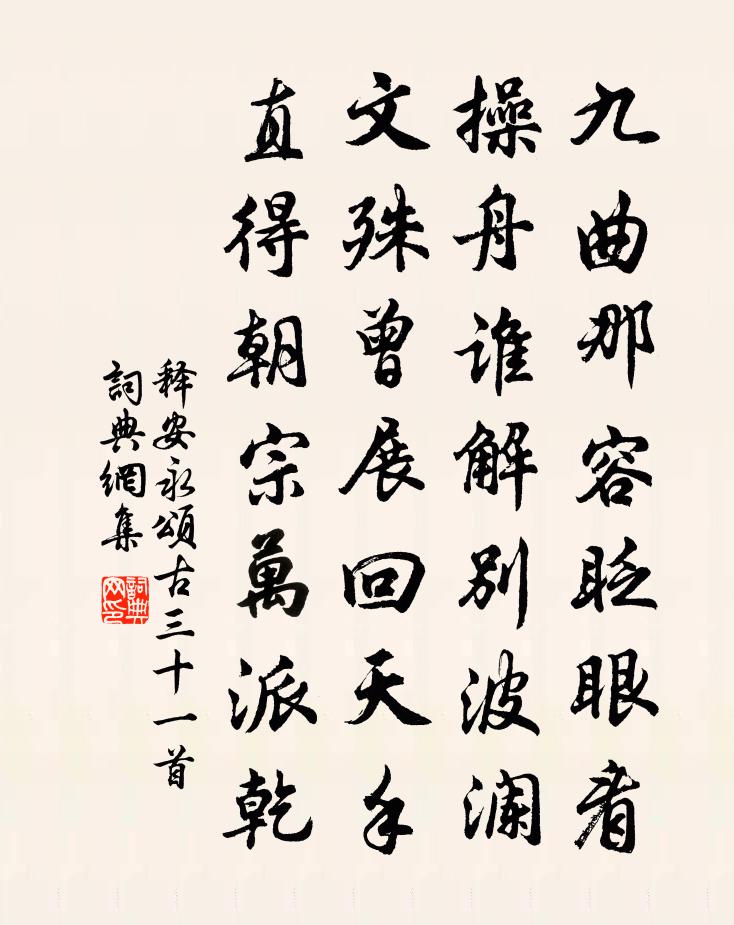 九曲那容眨眼看
操舟谁解别波澜
文殊曾展回天手
直得朝宗萬派乾
释安永頌古三十一首
詞典網集
詞典網印